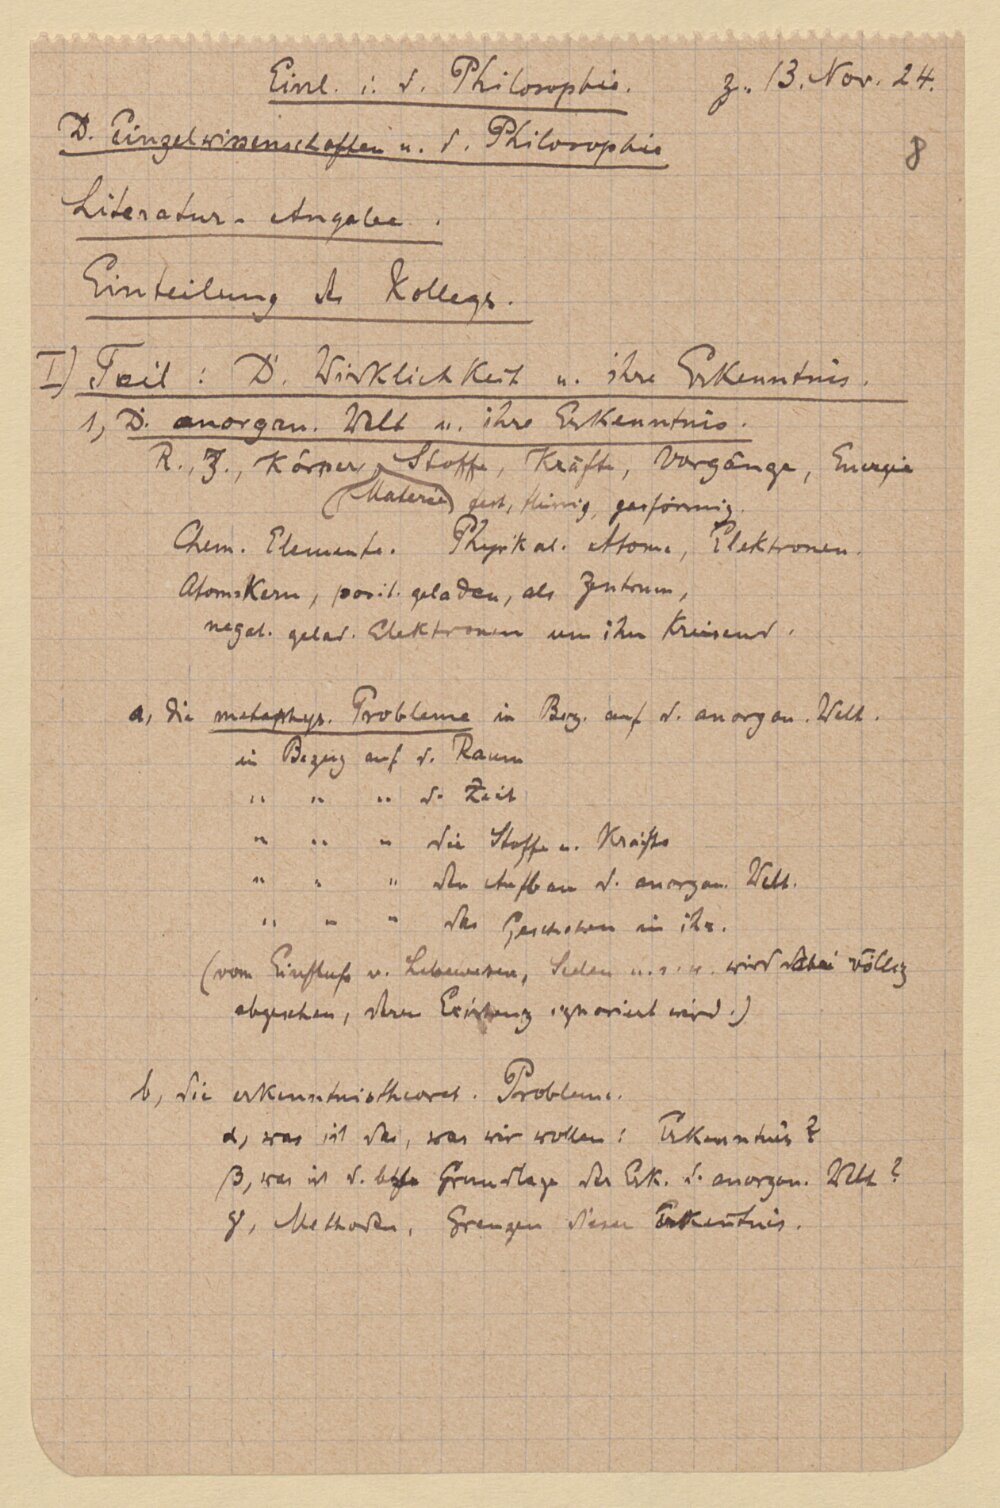 Einl. i. d. Philosophie. z. 13. Nov. 24.
8
D. Einzelwissenschaften u. d. Philosophie
Literatur-Angabe.
Einteilung des Kollegs.
I) Teil: D. Wirklichkeit u. ihre Erkenntnis.
1, D. anorgan. Welt u. ihre Erkenntnis.
R., Z., Körper, Stoffe, Kräfte, Vorgänge, Energie
(Materie) fest, flüssig, gasförmig.
Chem. Elemente. Physikal. Atome, Elektronen.
Atomkern, posit. geladen, als Zentrum,
negat. gelad. Elektronen um ihn kreisend.
a, die metaphys. Probleme in Bez. auf d. anorgan. Welt.
in Bezug auf d. Raum
" " " d. Zeit
" " " die Stoffe u. Kräfte
" " " den Aufbau d. anorgan. Welt.
" " " das Geschehen in ihr.
(vom Einfluß v. Lebewesen, Seelen u.s.w. wird dabei völlig
abgesehen, deren Existenz ignoriert wird.)
b, die erkenntnistheoret. Probleme.
α, was ist das, was wir wollen: Erkenntnis?
β, was ist d. Grundlage der Erk. d. anorgan. Welt?
γ, Methoden, Grenzen dieser Erkenntnis.